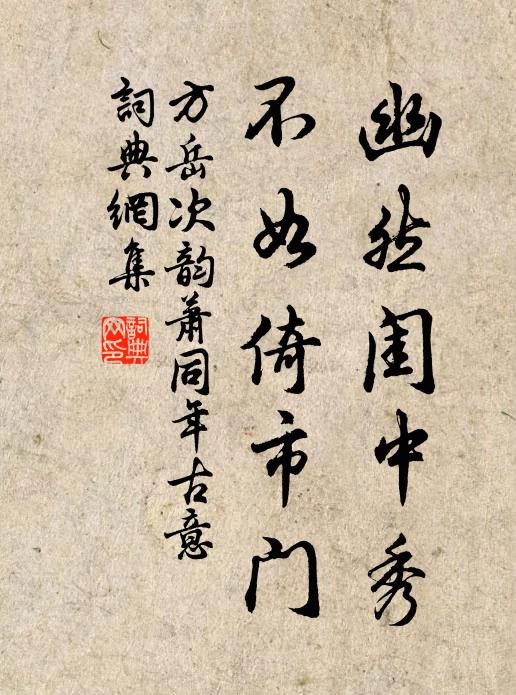 幽然閨中秀
不如倚市門
方岳次韵蕭同年古意
詞典網集
詞典
网印